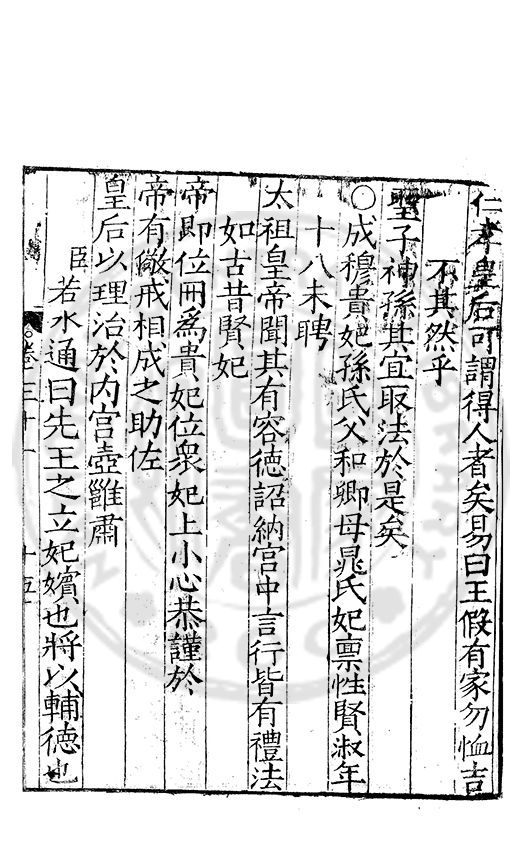 仁孝皇后可謂得人者矣易曰王假有家勿恤吉
不其然乎
聖子神孫其宜取法於是矣
○成穆貴妃孫氏父和卿母晁氏妃禀性賢淑年
十八未聘
太祖皇帝聞其有容德詔納宫中言行皆有禮法
如古昔賢妃
帝即位冊爲貴妃位衆妃上小心恭謹於
帝有儆戒相成之助佐
皇后以理治於内宫壼雝肅
臣若水通曰先王之立妃嬪也將以輔德也
卷三十一 十五